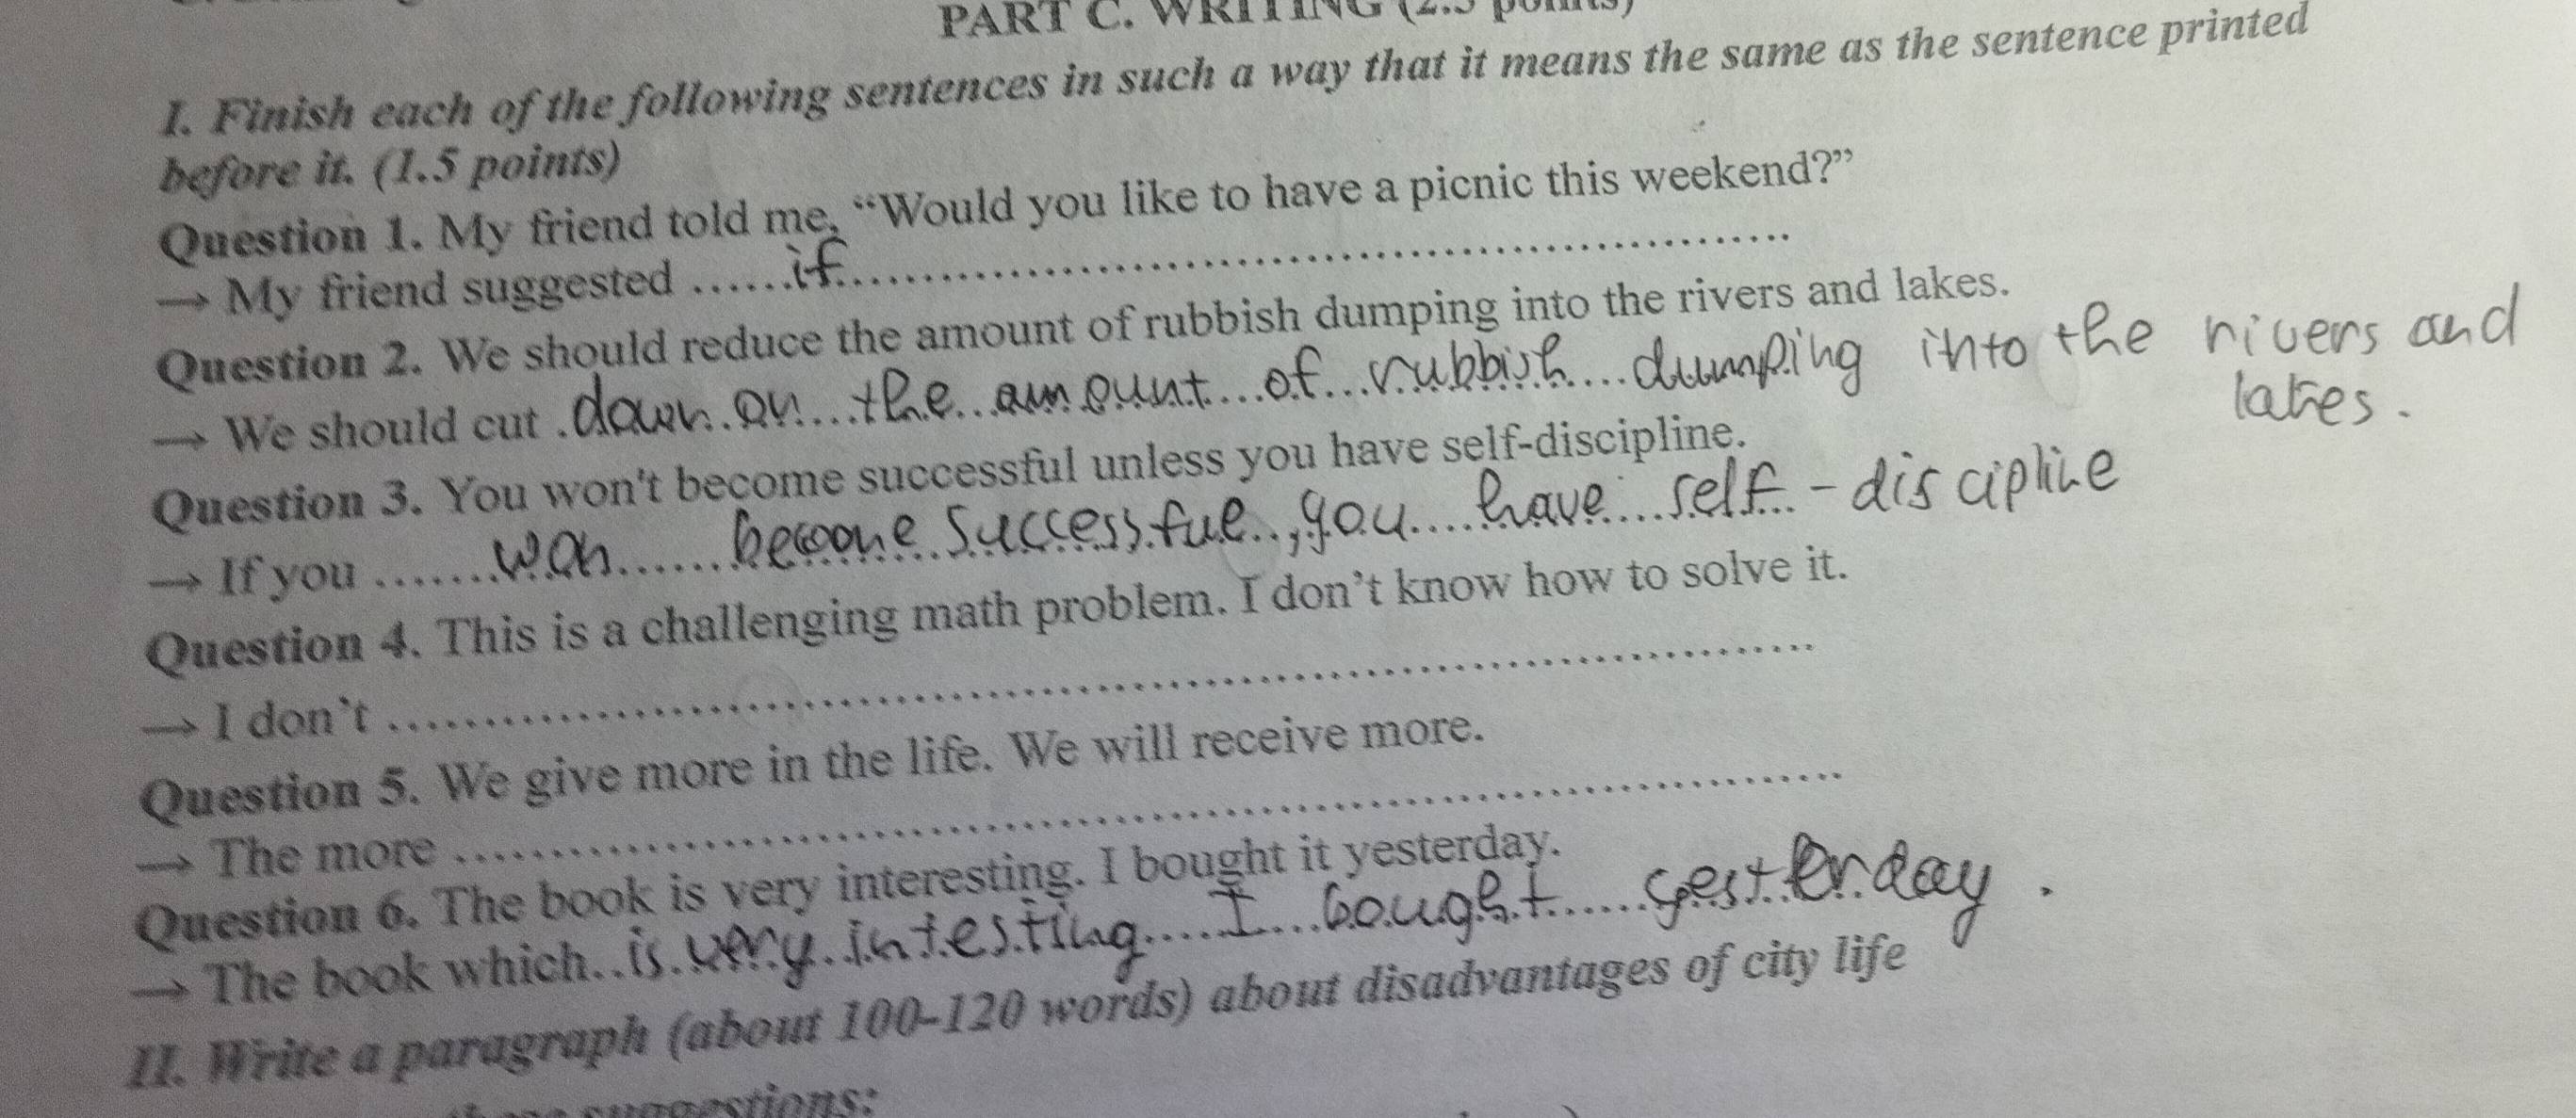 PART C. WRITING (2.5 points)
I. Finish each of the following sentences in such a way that it means the same as the sentence printed
before it. (1.5 points)
Question 1. My friend told me, “Would you like to have a picnic this weekend?”
→ My friend suggested ......if..........................................................
Question 2. We should reduce the amount of rubbish dumping into the rivers and lakes.
→ We should cut .down on the amount of rubbish dumping into the rivers and
lakes.
Question 3. You won't become successful unless you have self-discipline.
→ If you .......won.......become successful, you have self-discipline
Question 4. This is a challenging math problem. I don’t know how to solve it.
→ I don’t ..........................................................................
Question 5. We give more in the life. We will receive more.
→ The more ..........................................................................
Question 6. The book is very interesting. I bought it yesterday.
→ The book which..is very intesting.....I...bought......yesterday.
II. Write a paragraph (about 100-120 words) about disadvantages of city life
suggestions: